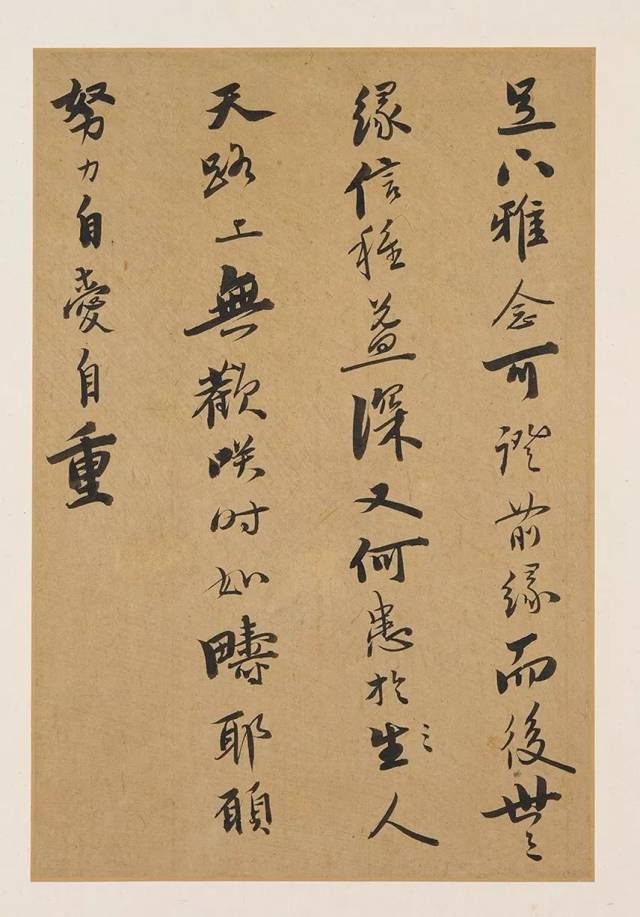 足下雅念可證前緣而後世之
緣信種益深又何患於生〻人
天路上無歡咲时如疇耶願
努力自愛自重